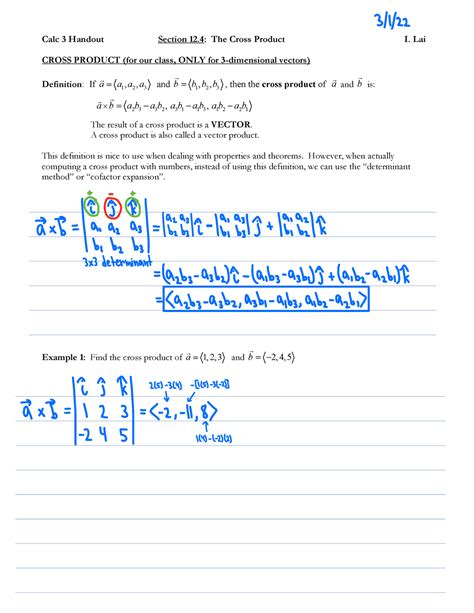 3/1/22
Calc 3 Handout Section 12.4: The Cross Product I. Lai
CROSS PRODUCT (for our class, ONLY for 3-dimensional vectors)
Definition: If a⃗ = ⟨a₁, a₂, a₃⟩ and b⃗ = ⟨b₁, b₂, b₃⟩, then the cross product of a⃗ and b⃗ is:
a⃗ × b⃗ = ⟨a₂b₃ − a₃b₂, a₃b₁ − a₁b₃, a₁b₂ − a₂b₁⟩
The result of a cross product is a VECTOR.
A cross product is also called a vector product.
This definition is nice to use when dealing with properties and theorems. However, when actually
computing a cross product with numbers, instead of using this definition, we can use the “determinant
method” or “cofactor expansion”.
+ − +
a⃗ × b⃗ = |î ĵ k̂; a₁ a₂ a₃; b₁ b₂ b₃| = |a₂ a₃; b₂ b₃| î − |a₁ a₃; b₁ b₃| ĵ + |a₁ a₂; b₁ b₂| k̂
3x3 determinant
= (a₂b₃ − a₃b₂)î − (a₁b₃ − a₃b₁)ĵ + (a₁b₂ − a₂b₁)k̂
= ⟨a₂b₃ − a₃b₂, a₃b₁ − a₁b₃, a₁b₂ − a₂b₁⟩
Example 1: Find the cross product of a⃗ = ⟨1, 2, 3⟩ and b⃗ = ⟨−2, 4, 5⟩
2(5)-3(4) -[1(5)-3(-2)]
a⃗ × b⃗ = |î ĵ k̂; 1 2 3; -2 4 5| = ⟨-2, -11, 8⟩
1(4)-(-2)(2)